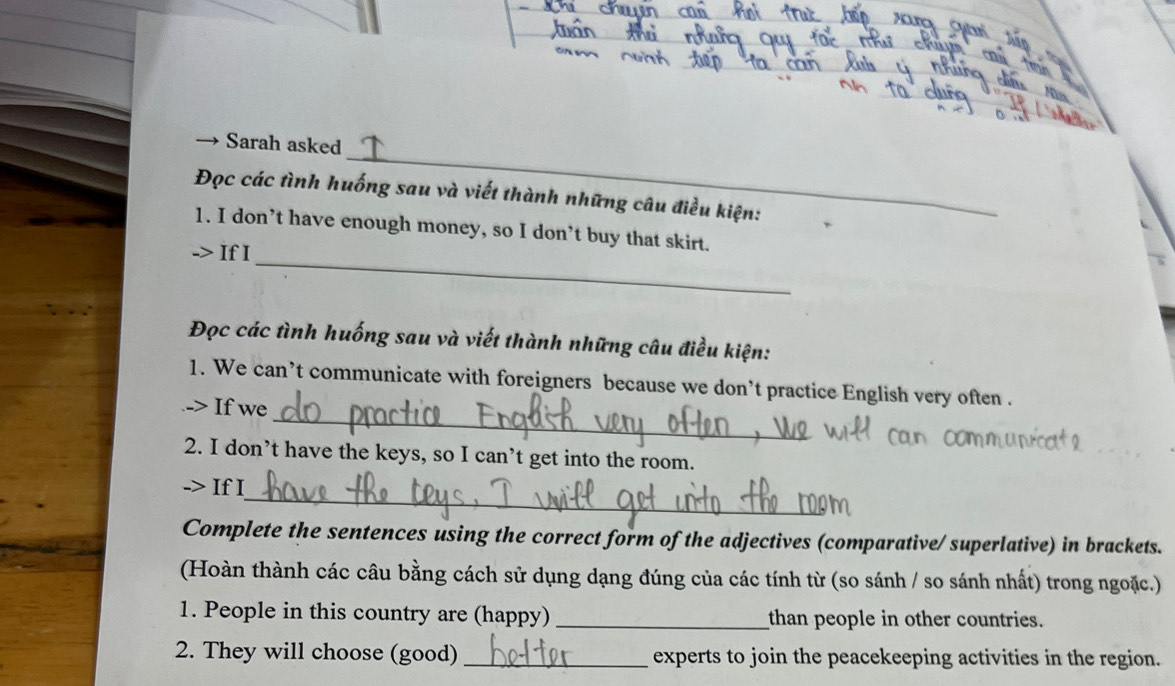 chuyển câu hỏi trực tiếp sang gián tiếp
những quy tắc như chuyển câu trần
mình tiếp ta cần lưu ý những
ta dùng "If /
→ Sarah asked
Đọc các tình huống sau và viết thành những câu điều kiện:
1. I don't have enough money, so I don't buy that skirt.
-> If I
Đọc các tình huống sau và viết thành những câu điều kiện:
1. We can't communicate with foreigners because we don't practice English very often .
-> If we do practice English very often, we will can communicate ....
2. I don't have the keys, so I can't get into the room.
-> If I have the keys, I will get into the room
Complete the sentences using the correct form of the adjectives (comparative/ superlative) in brackets.
(Hoàn thành các câu bằng cách sử dụng dạng đúng của các tính từ (so sánh / so sánh nhất) trong ngoặc.)
1. People in this country are (happy) ____ than people in other countries.
2. They will choose (good) better experts to join the peacekeeping activities in the region.